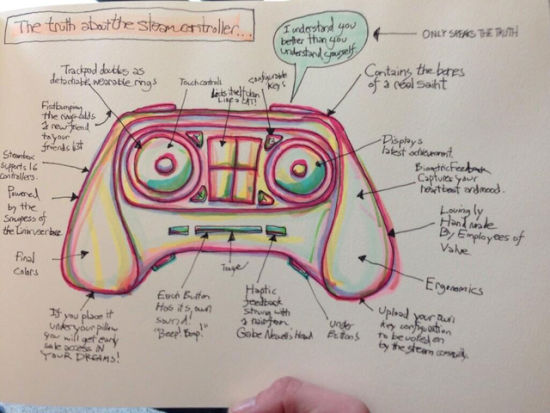 The truth about the steam controller...
I understand you
better than you
understand yourself.
ONLY SPEAKS THE TRUTH
Trackpad doubles as
detachable, wearable rings
Touch controls
itself clean
Like a CAT!
configurable
Keys
Contains the bones
of a real saint
Fistbumping
the rings adds
a new friend
to your
friends list
Displays
latest achievement.
Steambox
supports 16
controllers.
Biometric Feedback
Captures your
heartbeat and mood.
Powered
by the
Smugness of
the Linux userbase
Lovingly
Hand made
By Employees of
Valve
Final
colors
Ergonomics
If you place it
under your pillow
you will get early
sale access IN
YOUR DREAMS!
Each Button
Has it's own
sound!
"Beep! Boop."
Haptic
feedback
strung with
a hair from
Gabe Newell's Head
under
Buttons
Upload your own
Key configuration
to be voted on
by the steam community.